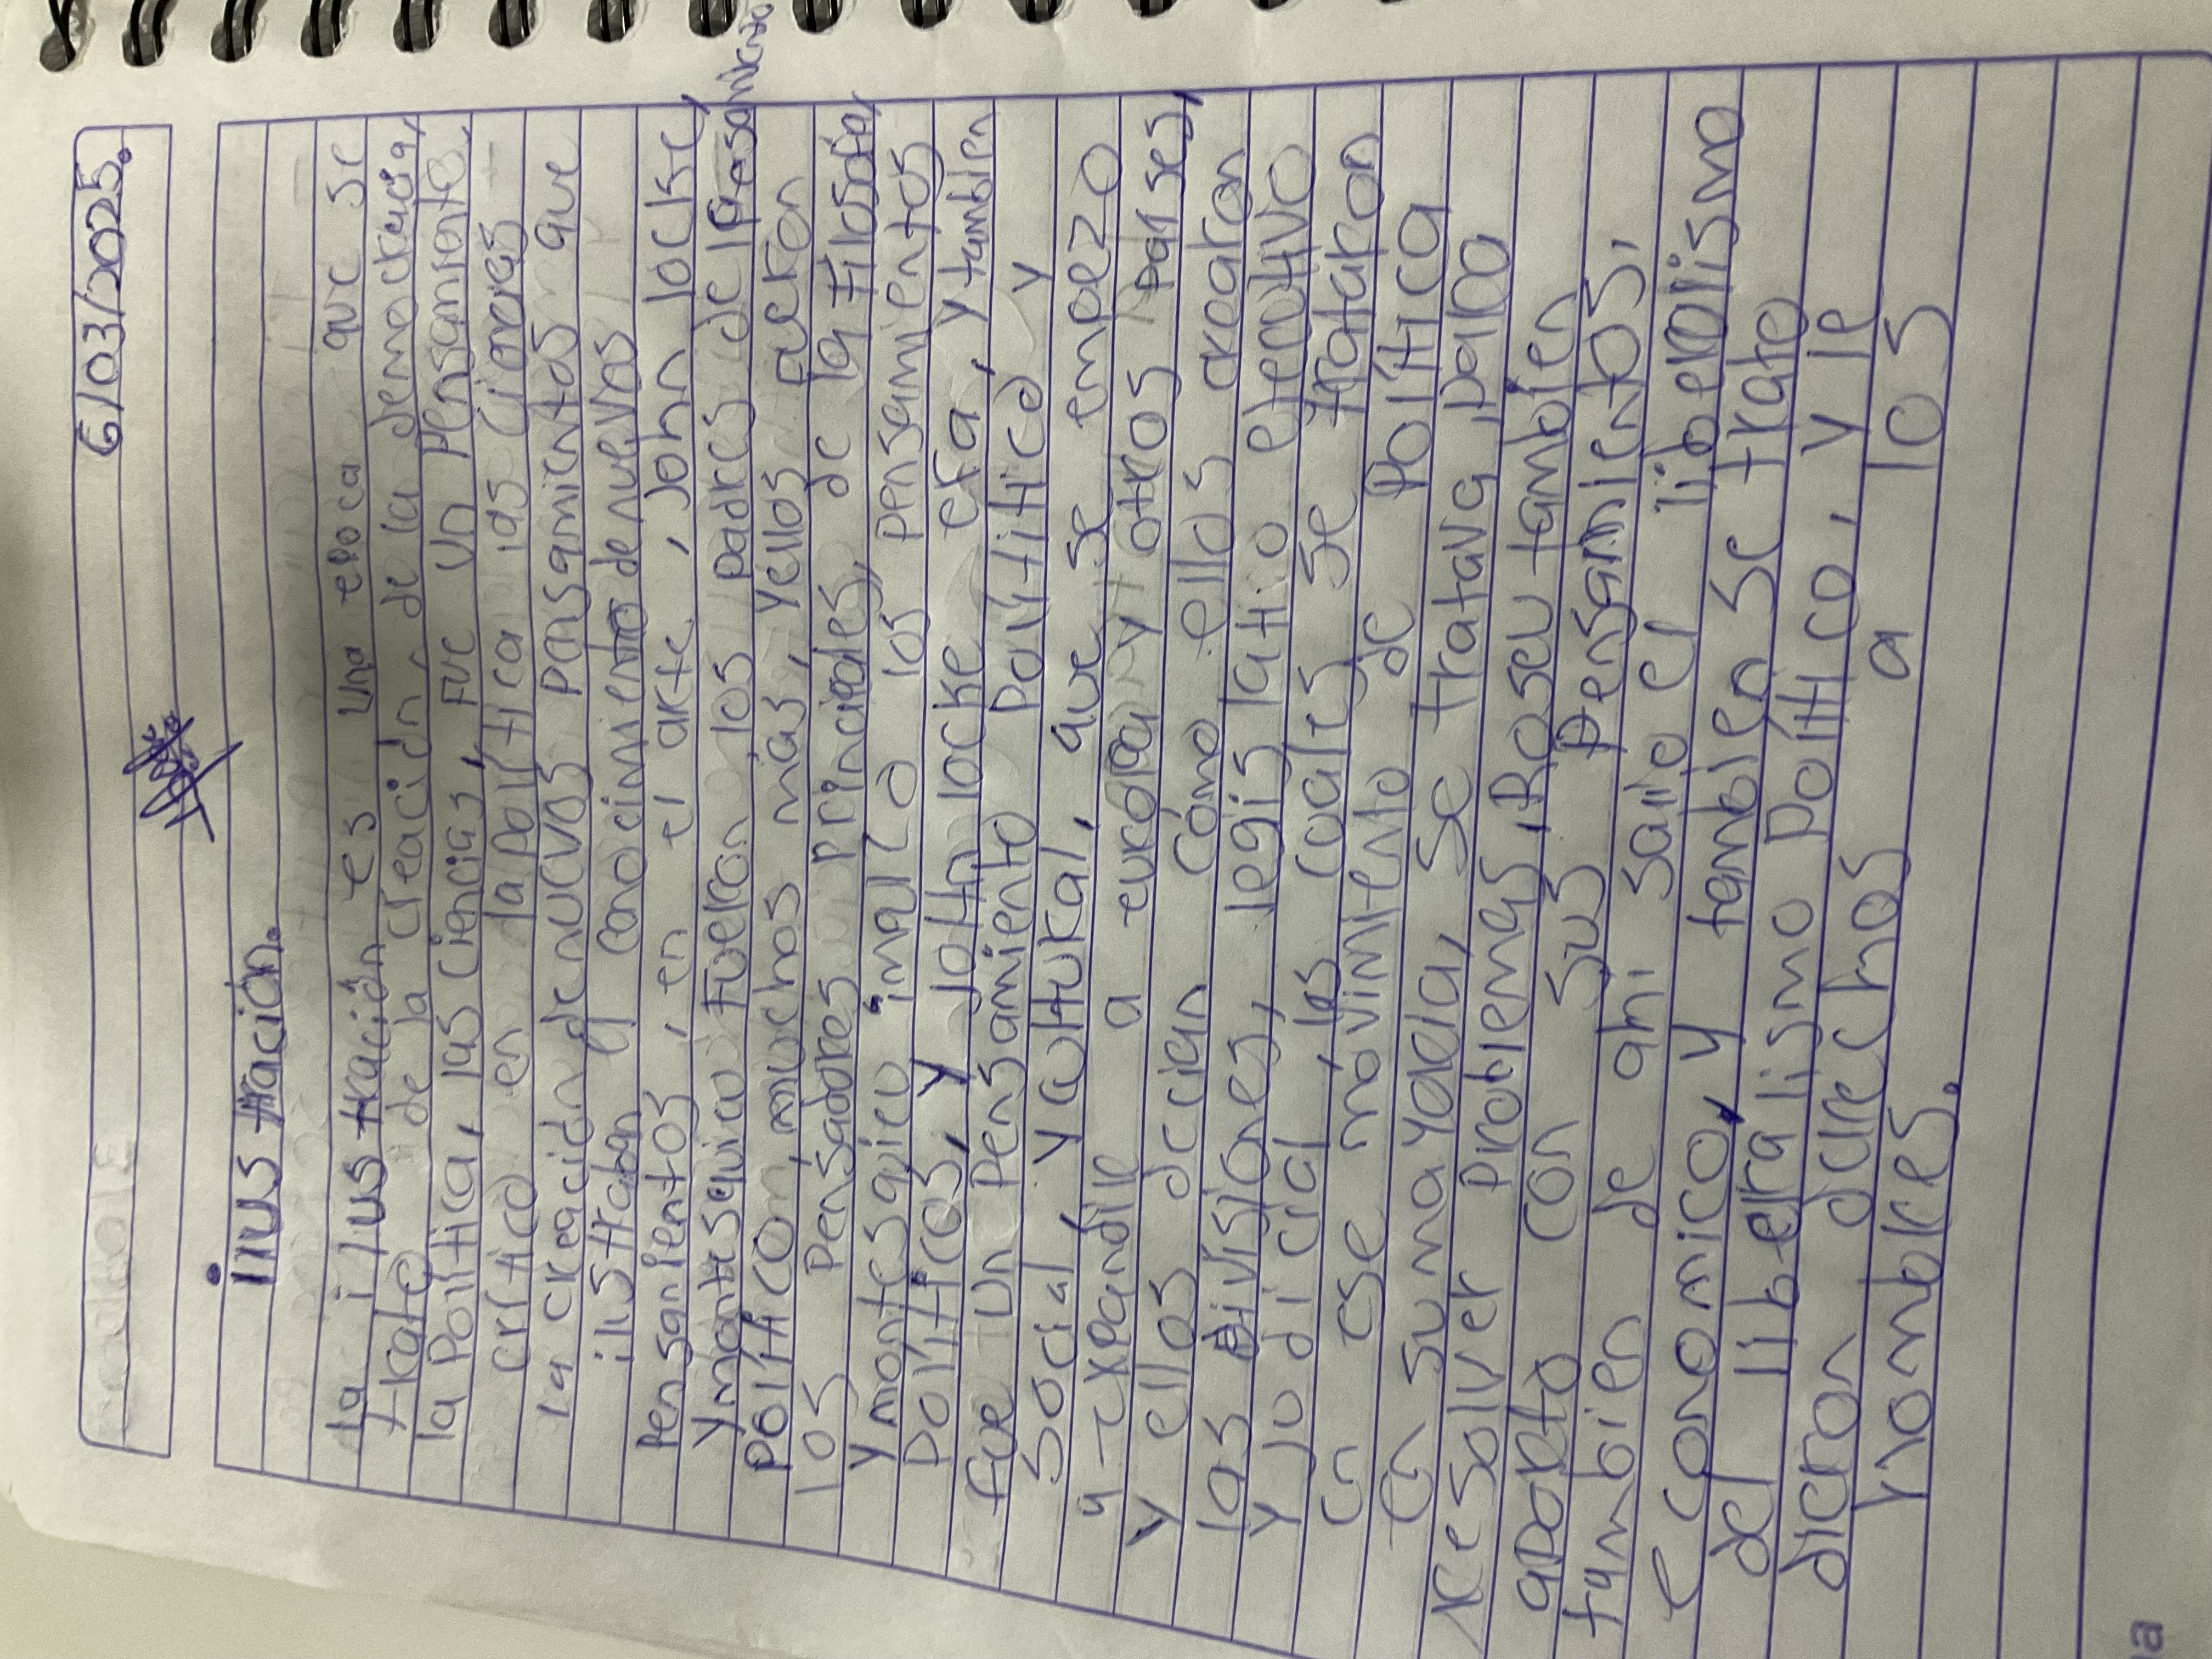 6/03/2025.
ilustración.
la ilustración es una epoca que se
trato de la creación de la democracia,
la Política, las ciencias, fue un pensamiento
crítico en la política las
la creación de nuevos pensamientos que
ilustraban conocimiento de nuevos
pensanientos, en el arte, John locke,
y montesquico fueron los padres de l pensamiento
político, muchos mas, y ellos fueron
los pensadores principales, de la filosofia,
y montesqico los pensamientos
políticos, y John locke era, y tambien
fue un pensamiento politico y
social, y cultural, que se empezo
a expandir a europa y otros paises,
y ellos decian cómo ellos crearon
las divisiones, legislatio ejecutivo
y judicial, las cuales se trataron
en ese movimiento de política
en su mayoria, se tratava para
resolver problemas, Roseu tambien
aporto con sus pensamientos,
tambien de ahi salio el liberalismo
economico, y tambien se trato
del liberalismo político, y le
dieron derechos a los
hombres.